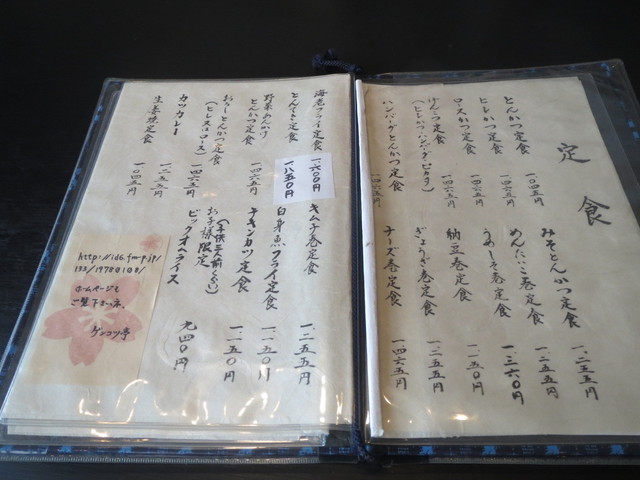 定食
とんかつ定食 一〇四五円
ヒレかつ定食 一四六五円
ロースかつ定食 一四六五円
げんこつ定食
(ヒレかつ・ハンバーグ・ピカタ) 一四六五円
ハンバーグとんかつ定食 一四六五円
みそとんかつ定食 一二五五円
めんたいこ巻定食 一二五五円
うめしそ巻定食 一三六〇円
納豆巻定食 一一五〇円
ぎょうざ巻定食 一二五五円
チーズ巻定食 一四六五円
海老フライ定食 一六〇〇円
とんてき定食 一八五〇円
野菜あんかけ
とんかつ定食 一四六五円
おろしとんかつ定食
(ヒレ又はロース) 一四六五円
カツカレー 一二五五円
生姜焼定食 一〇四五円
キムチ巻定食 一二五五円
白身魚フライ定食 一一五〇円
チキンカツ定食 一一五〇円
お子様限定
ビックオムライス 九四〇円
ホームページも
ご覧下さいネ。
ゲンコツ亭